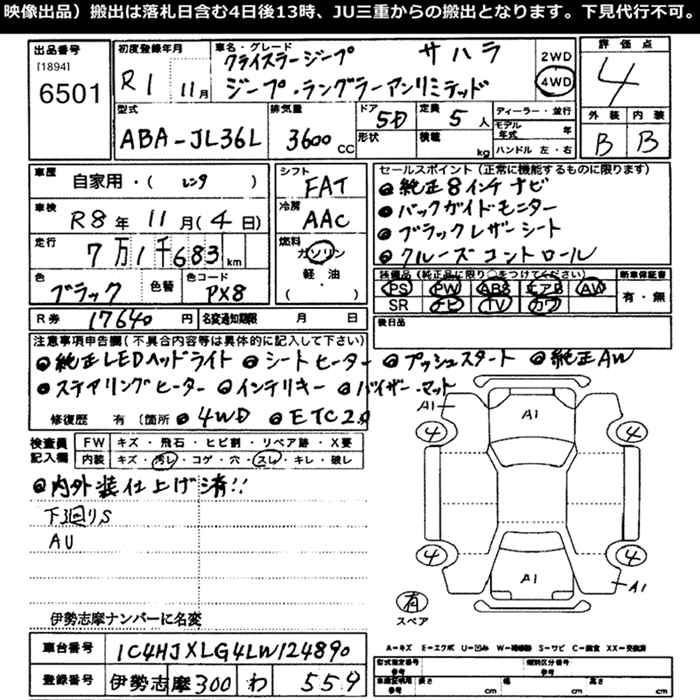 映像出品）搬出は落札日含む4日後13時、JU三重からの搬出となります。下見代行不可。
出品番号
[1894]
6501
初度登録年月
R1 11月
車名・グレード
クライスラージープ サハラ
ジープ・ラングラーアンリミテッド
2WD
4WD
評価点
4
外装 内装
B B
型式
ABA-JL36L
排気量
3600 CC
ドア
5D
形状
定員
5人
積載
kg
ディーラー・並行
モデル年式 年
ハンドル 左・右
車歴
自家用・( レンタ )
車検
R8年11月(4日)
走行
7万1千683km
色
ブラック
色替
色コード
PX8
シフト
FAT
冷房
AAC
燃料
ガソリン
軽・油
( ・ )
セールスポイント（正常に機能するものに限ります）
●純正8インチナビ
●バックガイドモニター
●ブラックレザーシート
●クルーズコントロール
装備品（純正品に限り○をつけてください） 新車保証書
PS PW ABS エアB AW
SR ナビ TV カワ
有・無
R券 17640円 名変通知期限 月 日
後日品
注意事項申告欄（不具合内容等は具体的に記入して下さい）
●純正LEDヘッドライト ●シートヒーター ●プッシュスタート ●純正AW
●ステアリングヒーター ●インテリキー ●バイザー・マット
修復歴 有（箇所 ●4WD ●ETC2.0
検査員記入欄
FW キズ・飛石・ヒビ割・リペア跡・X要
内装 キズ・汚レ・コゲ・穴・スレ・キレ・破レ
●内外装仕上げ済!!
下廻りS
AU
伊勢志摩ナンバーに名変
A1
A1
4 4
4 4
A1
A1
有
スペア
車台番号 1C4HJXLG4LW124890
登録番号 伊勢志摩 300 わ 559
A=キズ E=エクボ U=凹み W=補修跡 S=サビ C=腐食 XX=交換済
型式指定番号 類別区分番号
参考 参考
長さ 幅 高さ
参考 cm cm cm